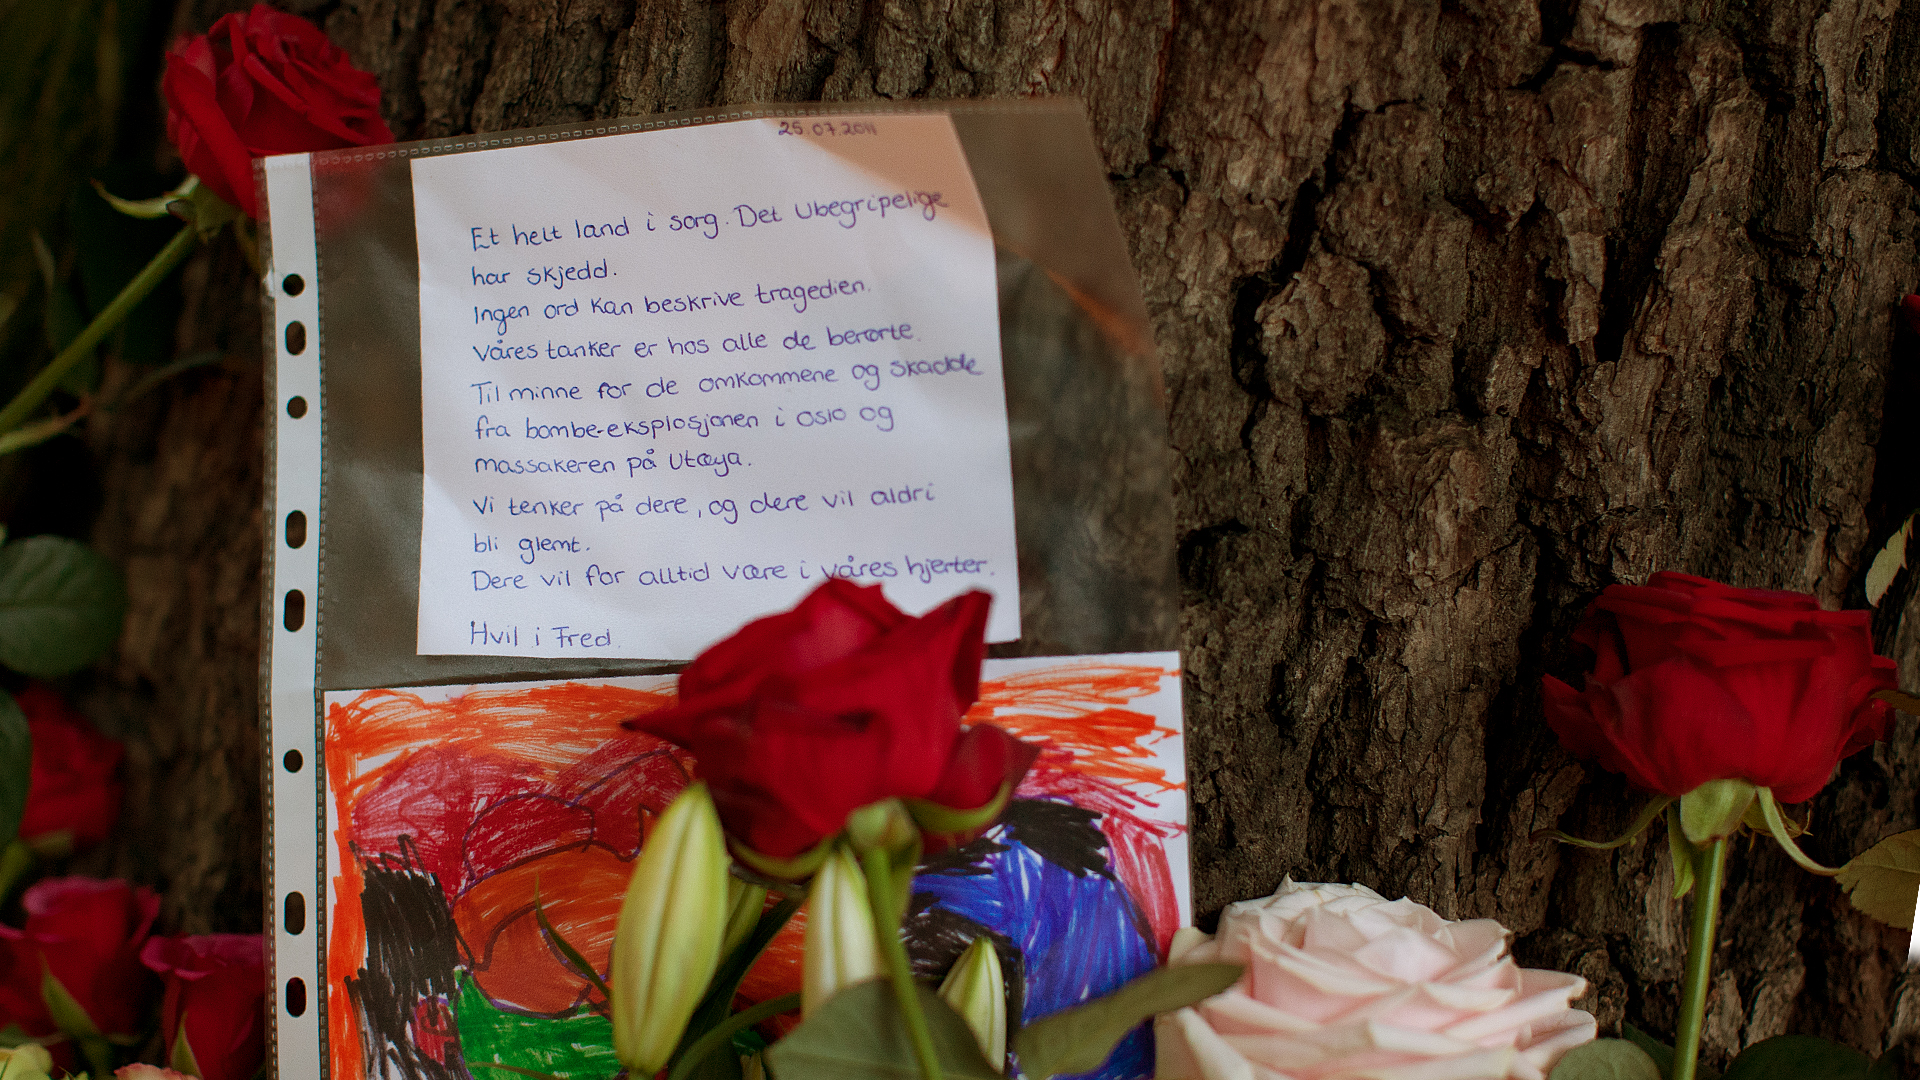 25.07.2011
Et helt land i sorg. Det Ubegripelige
har skjedd.
Ingen ord kan beskrive tragedien.
Våres tanker er hos alle de berørte.
Til minne for de omkommene og skadde
fra bombe-eksplosjonen i oslo og
massakeren på Utøya.
Vi tenker på dere, og dere vil aldri
bli glemt.
Dere vil for alltid være i våres hjerter.
Hvil i Fred.